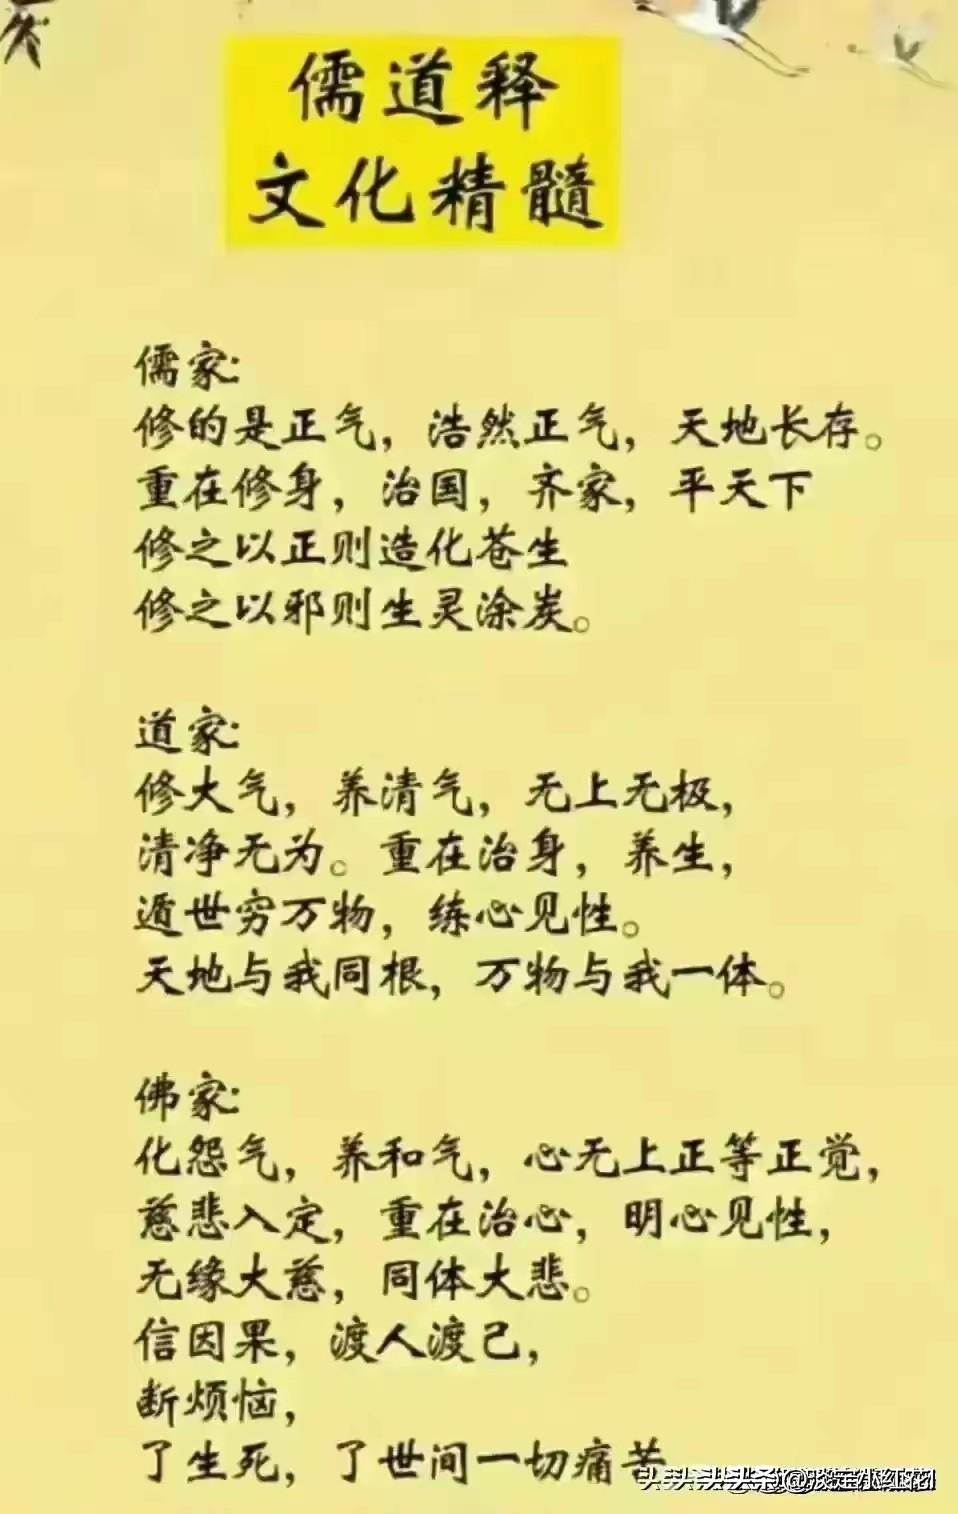 儒道释
文化精髓
儒家:
修的是正气，浩然正气，天地长存。
重在修身，治国，齐家，平天下
修之以正则造化苍生
修之以邪则生灵涂炭。
道家:
修大气，养清气，无上无极，
清净无为。重在治身，养生，
遁世穷万物，练心见性。
天地与我同根，万物与我一体。
佛家:
化怨气，养和气，心无上正等正觉，
慈悲入定，重在治心，明心见性，
无缘大慈，同体大悲。
信因果，渡人渡己，
断烦恼，
了生死，了世间一切痛苦